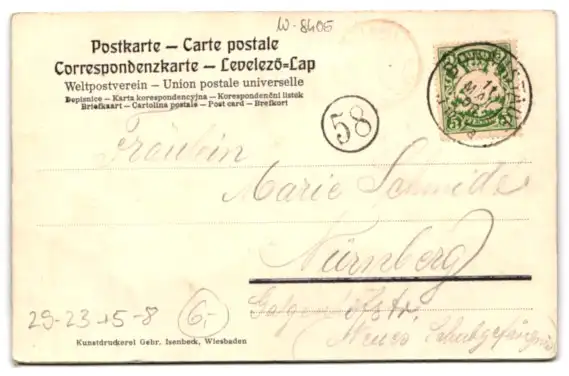 W-8405
Postkarte – Carte postale
Correspondenzkarte – Levelező-Lap
Weltpostverein – Union postale universelle
Dopisnice – Karta korespondencyjna – Korespondenční lístek
Briefkaart – Cartolina postale – Post card – Brefkort
58
11
MAI
Fräulein
Marie Schmidt
Nürnberg
29-23+5-8
6,-
Neues Schulgefängnis
Kunstdruckerei Gebr. Isenbeck, Wiesbaden